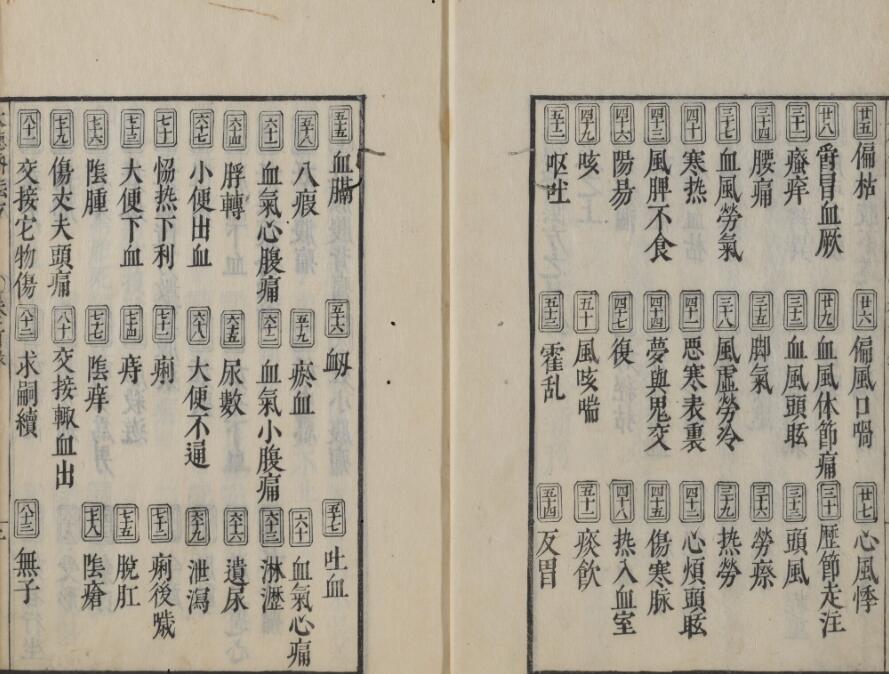 廿五 偏枯 廿六 偏風口喎 廿七 心風悸
廿八 冒血厥 廿九 血風体節痛 三十 歷節走注
三十一 瘙痒 三十二 血風頭眩 三十三 頭風
三十四 腰痛 三十五 脚氣 三十六 勞瘵
三十七 血風勞氣 三十八 風虛勞冷 三十九 热勞
四十 寒热 四十一 恶寒表裏 四十二 心煩頭眩
四十三 風脾不食 四十四 夢與鬼交 四十五 傷寒脉
四十六 陽昜 四十七 復 四十八 热入血室
四十九 咳 五十 風咳喘 五十一 痰飲
五十二 呕吐 五十三 霍乱 五十四 反胃
五十五 血膈 五十六 衂 五十七 吐血
五十八 八瘕 五十九 瘀血 六十 血氣心痛
六十一 血氣心腹痛 六十二 血氣小腹痛 六十三 淋瀝
六十四 脬轉 六十五 尿數 六十六 遺尿
六十七 小便出血 六十八 大便不通 六十九 泄瀉
七十 恊热下利 七十一 痢 七十二 痢後噦
七十三 大便下血 七十四 痔 七十五 脫肛
七十六 隂腫 七十七 隂痒 七十八 隂瘡
七十九 傷丈夫頭痛 八十 交接輙血出
八十一 交接它物傷 八十二 求嗣續 八十三 無子